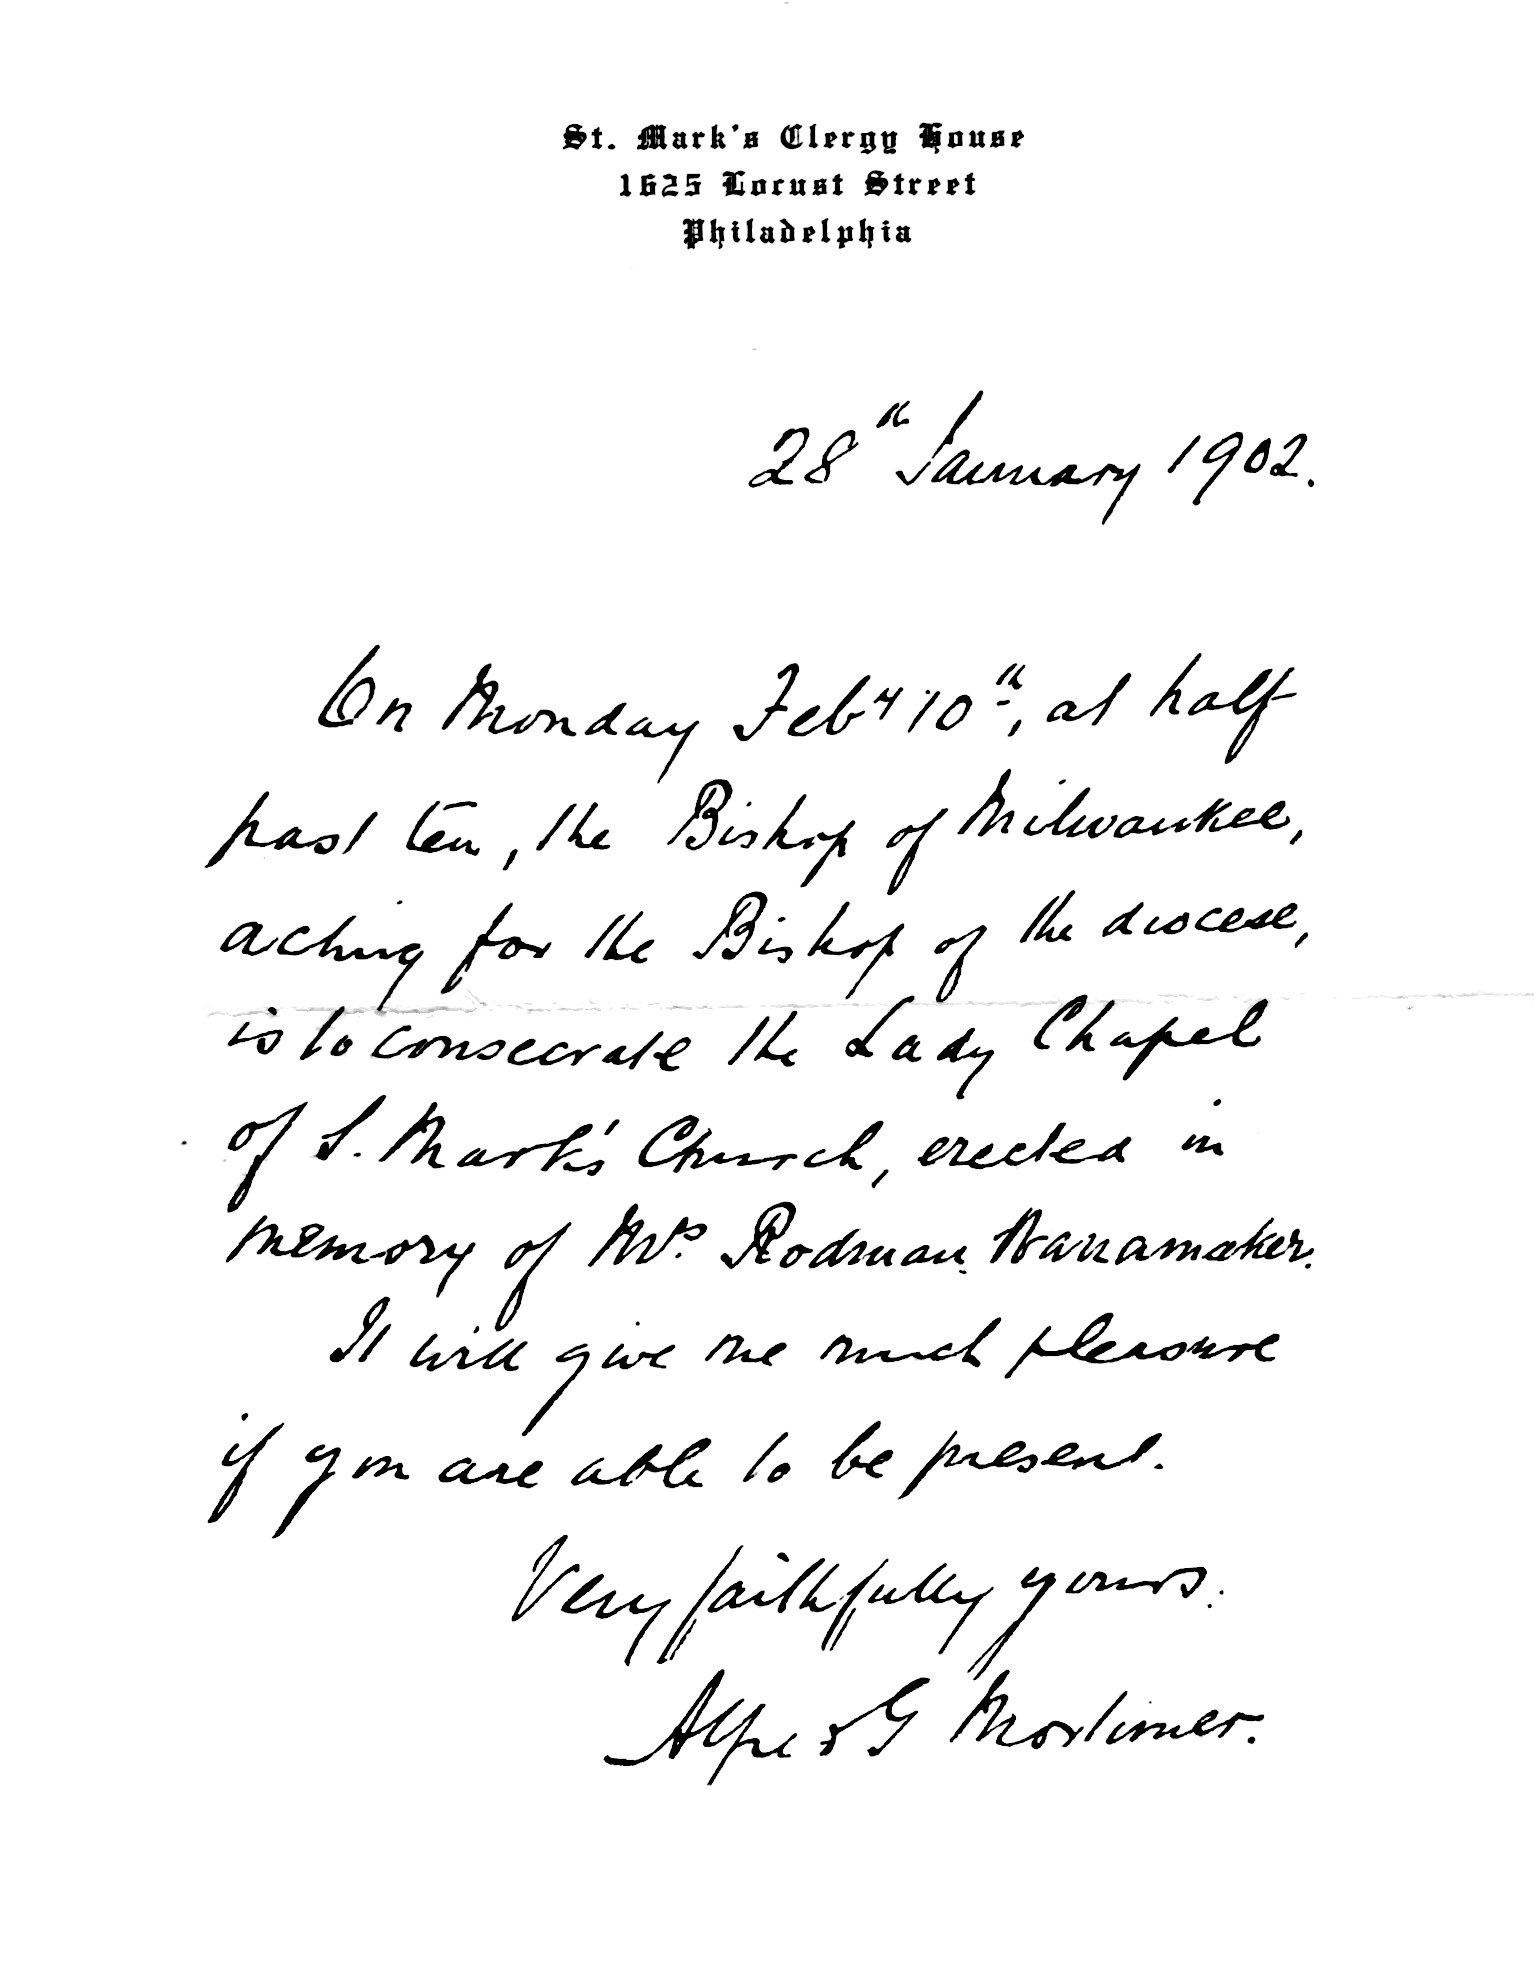 St. Mark's Clergy House
1625 Locust Street
Philadelphia
28th January 1902.
On Monday Feby 10th, at half
past ten, the Bishop of Milwaukee,
acting for the Bishop of the diocese,
is to consecrate the Lady Chapel
of S. Mark's Church, erected in
memory of Mrs. Rodman Wanamaker.
It will give me much pleasure
if you are able to be present.
Very faithfully yours.
Alfred G Mortimer.